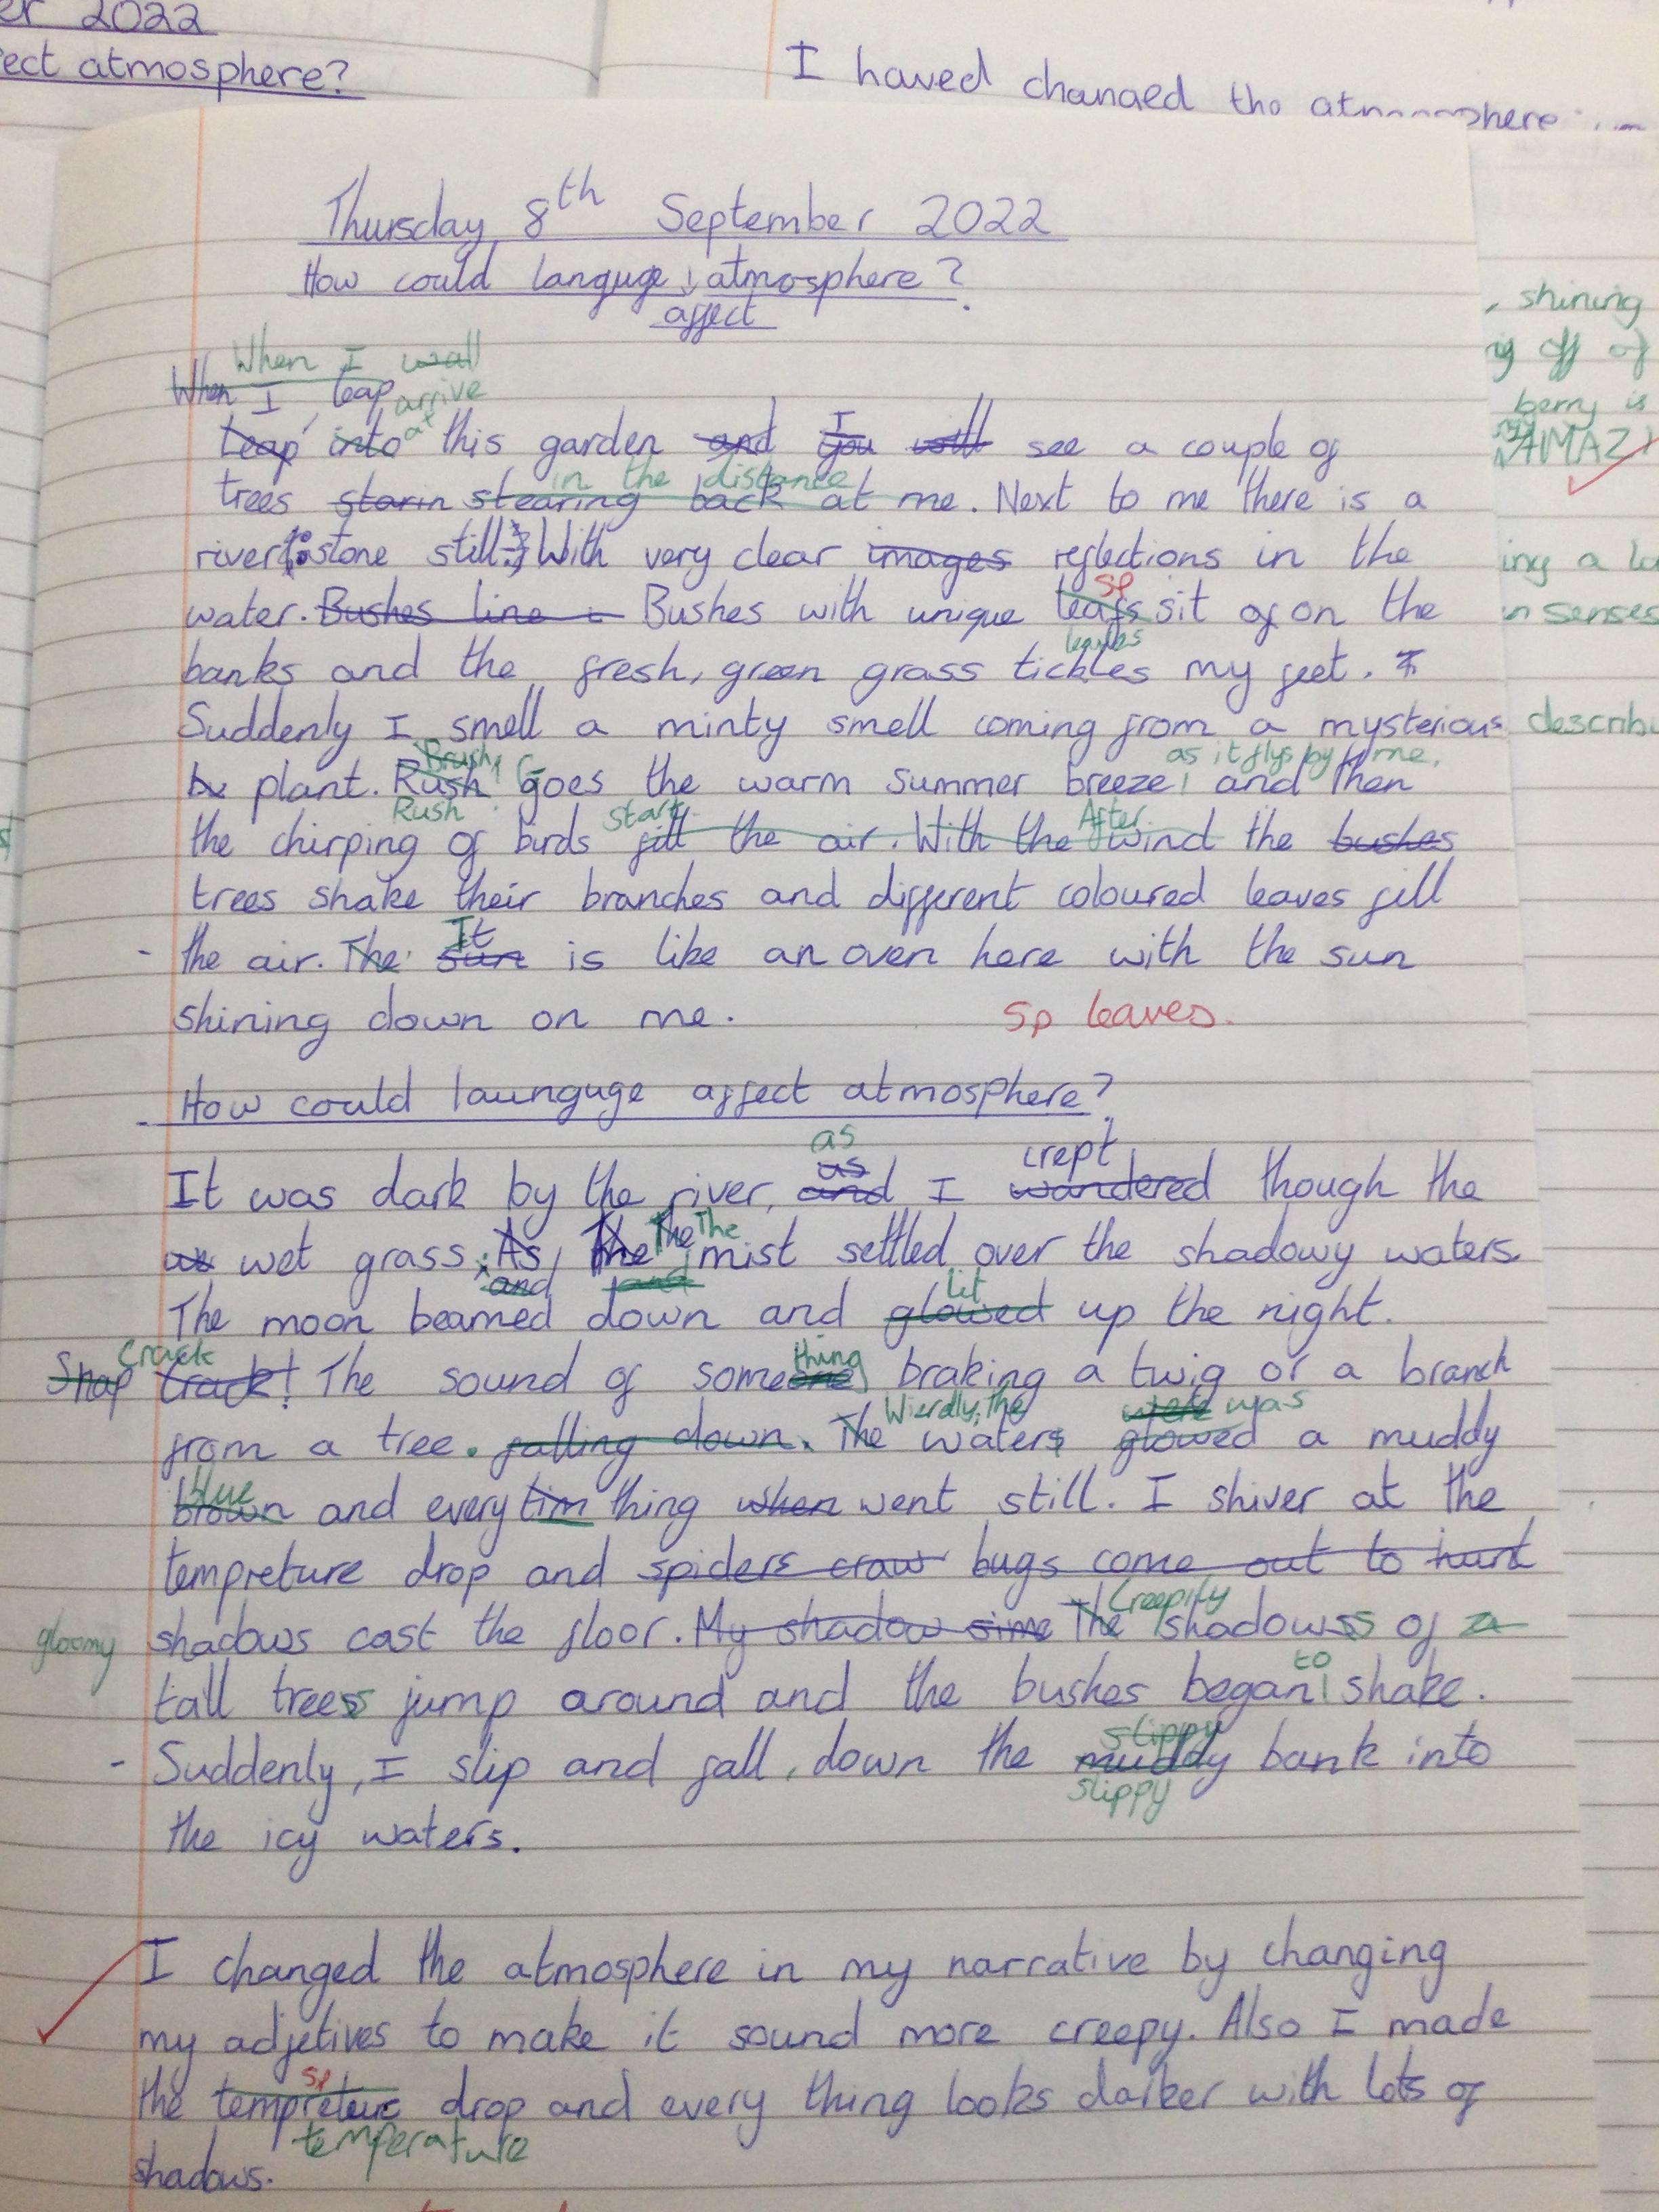 er 2022
ect atmosphere?
I haved changed the atmosphere
Thursday 8th September 2022
How could languge atmosphere?
affect
When I wall
When I leap arrive
Leap into at this garden and you I will see a couple of
in the distance
trees starin stearing back at me. Next to me there is a
river stone still With very clear images reflections in the
sp
water. Bushes line Bushes with unique leafs sit of on the
leaves
banks and the fresh, green grass tickles my feet.
Suddenly I smell a minty smell coming from a mysterious
Brush! as it flys by me,
plant. Rush! goes the warm summer breeze, and then
Rush start After
the chirping of birds fill the air. With the wind the bushes
trees shake their branches and different coloured leaves fill
It
- the air. The sun is like an oven here with the sun
shining down on me.
sp leaves.
- How could launguge affect atmosphere?
as
as crept
It was dark by the river, and I wandered though the
The The
wet grass; As, The mist settled over the shadowy waters.
and and lit
The moon beamed down and glowed up the night.
crack thing
Snap Crack! The sound of someone braking a twig or a branch
Wierdly, the were was
from a tree. falling down. The waters glowed a muddy
blue
brown and every tim thing when went still. I shiver at the
tempreture drop and spiders craw bugs come out to hunt
Creepify
gloomy shadows cast the floor. My shadow sime The shadows of a
to
tall trees jump around and the bushes began shake.
slippy
- Suddenly, I slip and fall, down the muddy bank into
slippy
the icy waters.
I changed the atmosphere in my narrative by changing
my adjetives to make it sound more creepy. Also I made
sp
the tempreture drop and every thing looks darker with lots of
temperature
shadows.
, shining
ng off of
berry is
AMAZ
ing a lo
n senses
describ